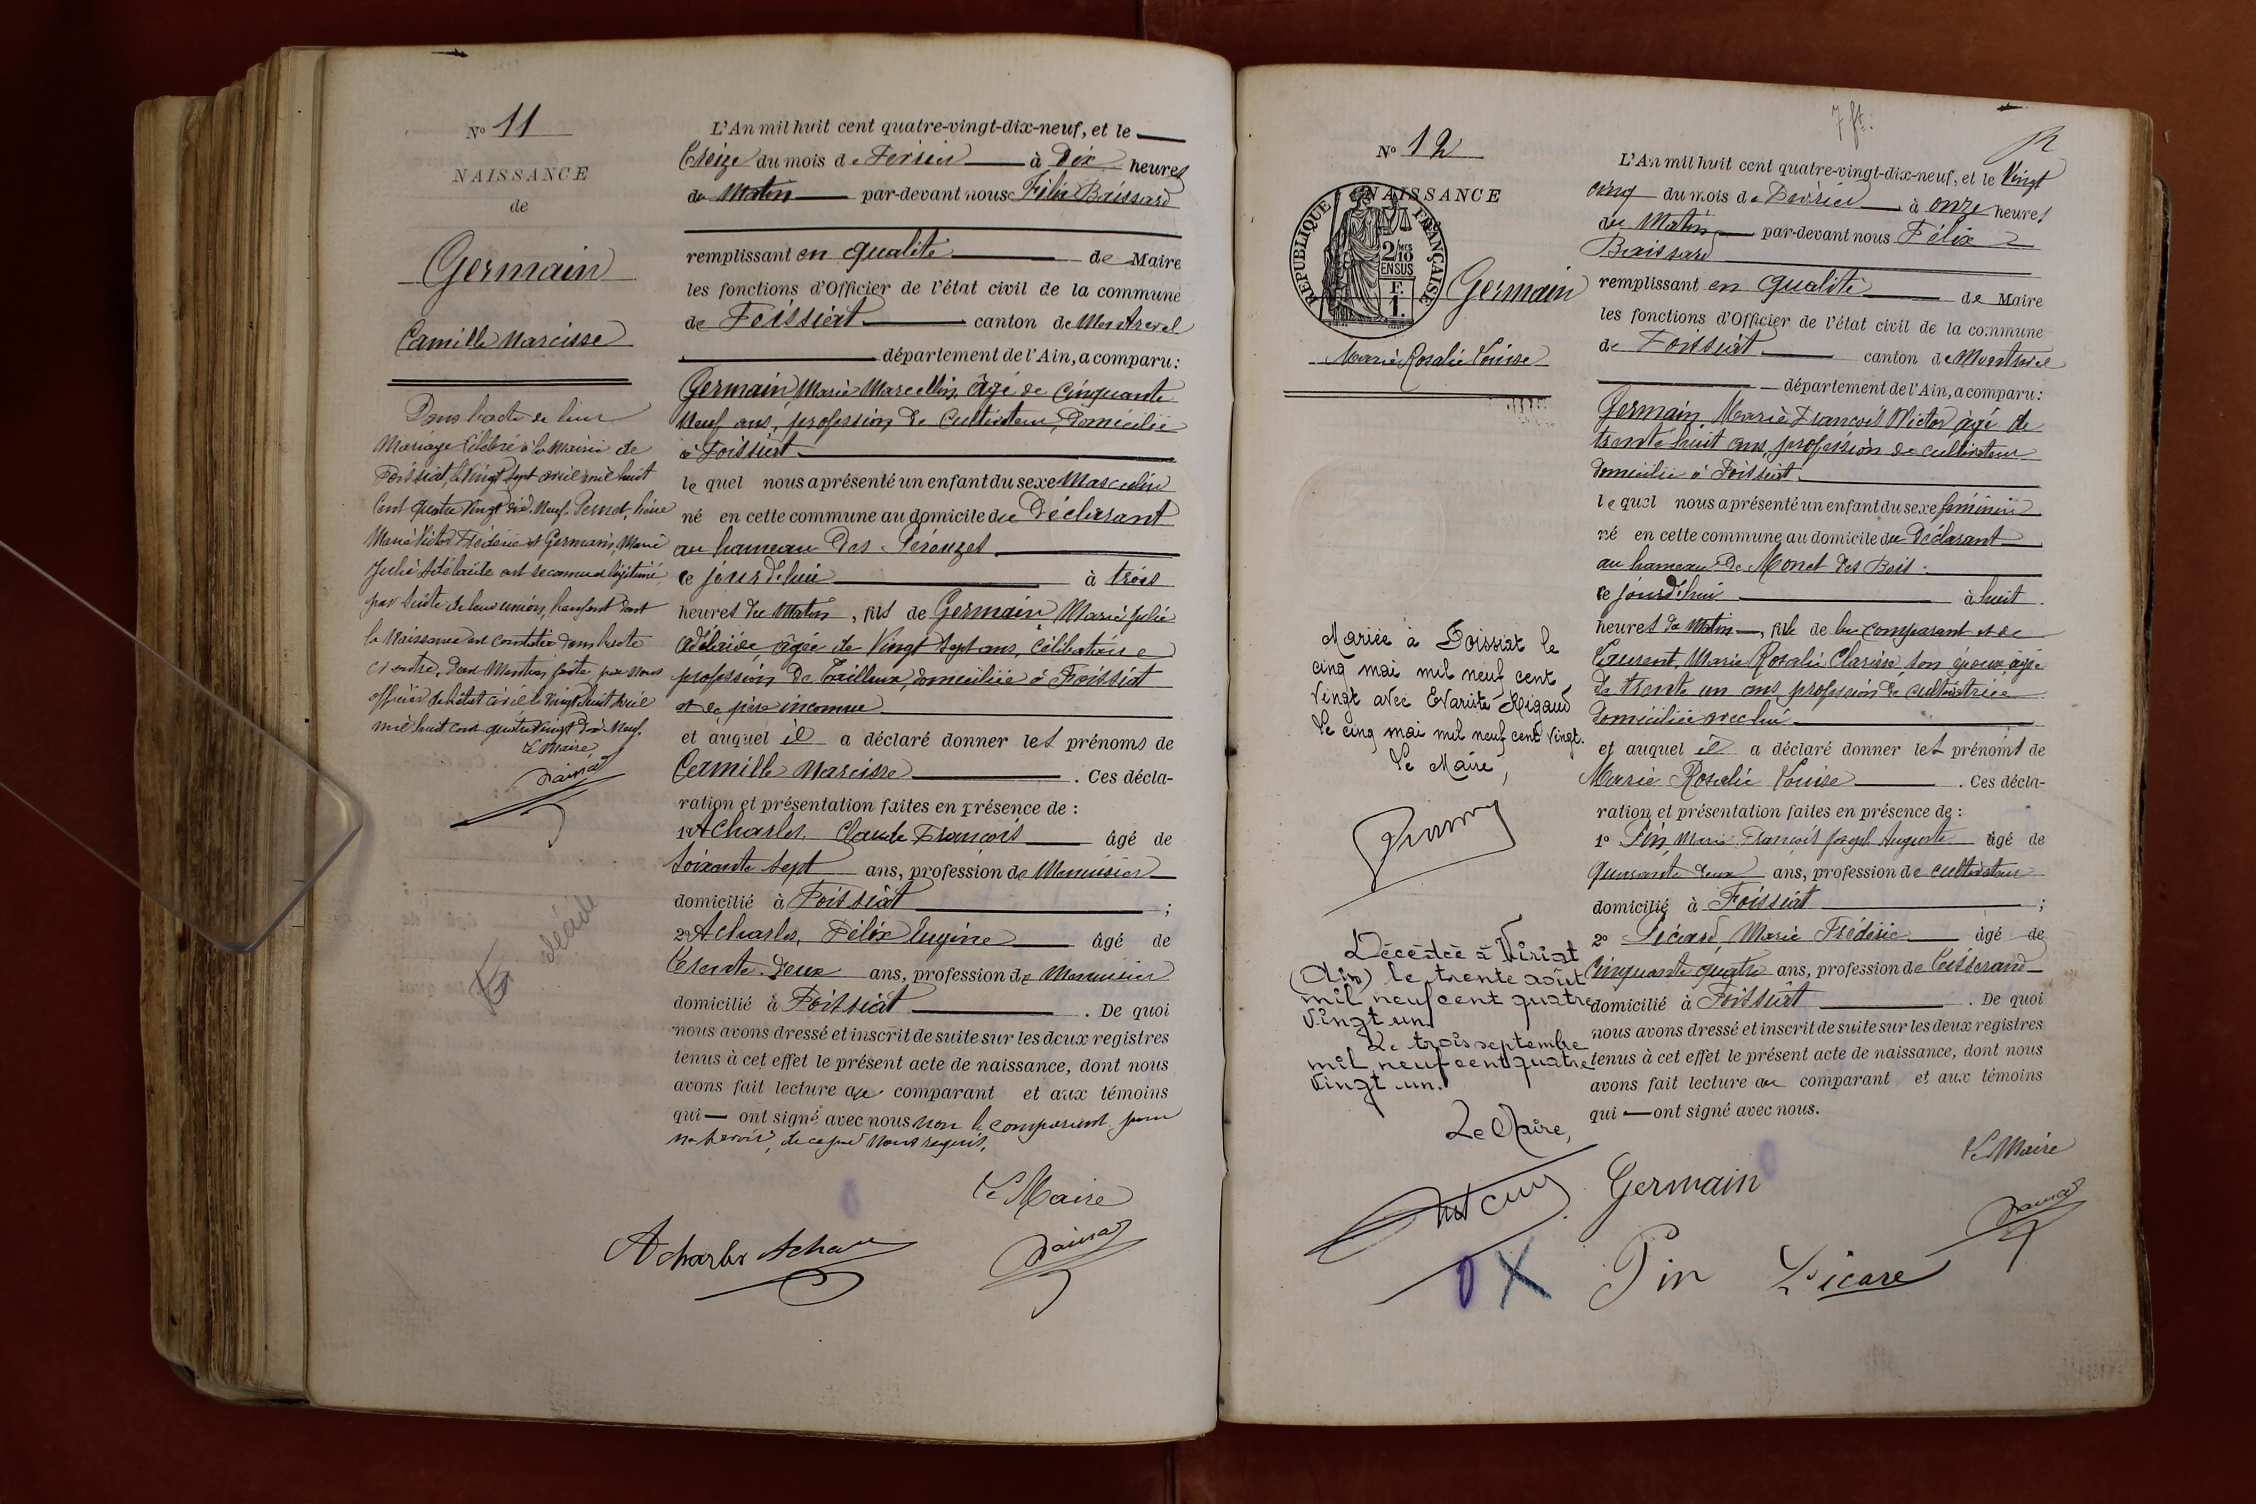 N° 11
NAISSANCE
de
Germain
Camille Narcisse
Dans l'acte de leur
Mariage célébré à la Mairie de
Foissiat, le vingt sept avril mil huit
Cent quatre vingt dix-Neuf, Pernet,
Marie Victor Frédéric et Germain, Marie
Julie Adélaïde ont reconnu et légitimé
par suite de leur union, l'enfant dont
la Naissance est constatée dans l'acte
ci contre. Dont Mention faite par Nous
officier de l'état civil le vingt huit Avril
mil huit cent quatre vingt dix-Neuf.
Le Maire
décédé
L'An mil huit cent quatre-vingt-dix-neuf, et le
treize du mois de Février à Dix heures
du Matin par-devant nous Félix Baissard
remplissant en qualité de Maire
les fonctions d'Officier de l'état civil de la commune
de Foissiat canton de Montrevel
département de l'Ain, a comparu:
Germain, Marie Marcellin, âgé de Cinquante
Neuf ans, profession de Cultivateur, domicilié
à Foissiat
le quel nous a présenté un enfant du sexe Masculin
né en cette commune au domicile du Déclarant
au hameau Des
ce jourd'hui à trois
heures du Matin, fils de Germain, Marie Julie
âgée de Vingt sept ans, Célibataire
profession de Tailleuse, domiciliée à Foissiat
et de père inconnu
et auquel il a déclaré donner les prénoms de
Camille Narcisse. Ces décla-
ration et présentation faites en présence de:
1° Acharles, Claude François âgé de
Soixante sept ans, profession de Menuisier
domicilié à Foissiat;
2° Acharles, Félix Eugène âgé de
trente deux ans, profession de Menuisier
domicilié à Foissiat. De quoi
nous avons dressé et inscrit de suite sur les deux registres
tenus à cet effet le présent acte de naissance, dont nous
avons fait lecture au comparant et aux témoins
qui ont signé avec nous non le comparant pour
ne savoir, de ce par Nous requis.
Le Maire
Acharles
7 ft.
N° 12
NAISSANCE
RÉPUBLIQUE FRANÇAISE
2/10 MES
EN SUS
F.
1.
Germain
Marie Rosalie Louise
Mariée à Foissiat le
cinq mai mil neuf cent
vingt avec Evariste Rigaud
Le cinq mai mil neuf cent vingt.
Le Maire,
Décédée à Viriat
(Ain) le trente août
mil neuf cent quatre
vingt un.
Le trois septembre
mil neuf cent quatre
vingt un.
Le Maire,
L'An mil huit cent quatre-vingt-dix-neuf, et le Vingt
cinq du mois de Février à onze heures
du Matin par-devant nous Félix
Baissard
remplissant en qualité de Maire
les fonctions d'Officier de l'état civil de la commune
de Foissiat canton de Montrevel
département de l'Ain, a comparu:
Germain, Marie François Victor âgé de
trente huit ans, profession de cultivateur
domicilié à Foissiat.
le quel nous a présenté un enfant du sexe féminin
né en cette commune au domicile du Déclarant
au hameau De Monet Des Bois.
ce jourd'hui à huit
heures du Matin, fille de lui comparant et de
Laurent, Marie Rosalie Clarisse son épouse âgée
de trente un ans, profession de cultivatrice
domiciliée avec lui
et auquel il a déclaré donner les prénoms de
Marie Rosalie Louise. Ces décla-
ration et présentation faites en présence de:
1° Pin, Marie François Joseph Auguste âgé de
Quarante deux ans, profession de cultivateur
domicilié à Foissiat;
2° Sicard, Marie Frédéric âgé de
Cinquante quatre ans, profession de tisserand
domicilié à Foissiat. De quoi
nous avons dressé et inscrit de suite sur les deux registres
tenus à cet effet le présent acte de naissance, dont nous
avons fait lecture au comparant et aux témoins
qui ont signé avec nous.
Le Maire
Germain
Pin